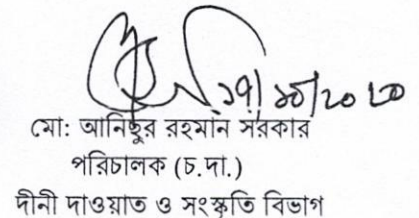 মো: আনিছুর রহমান সরকার
পরিচালক (চ.দা.)
দীনী দাওয়াত ও সংস্কৃতি বিভাগ